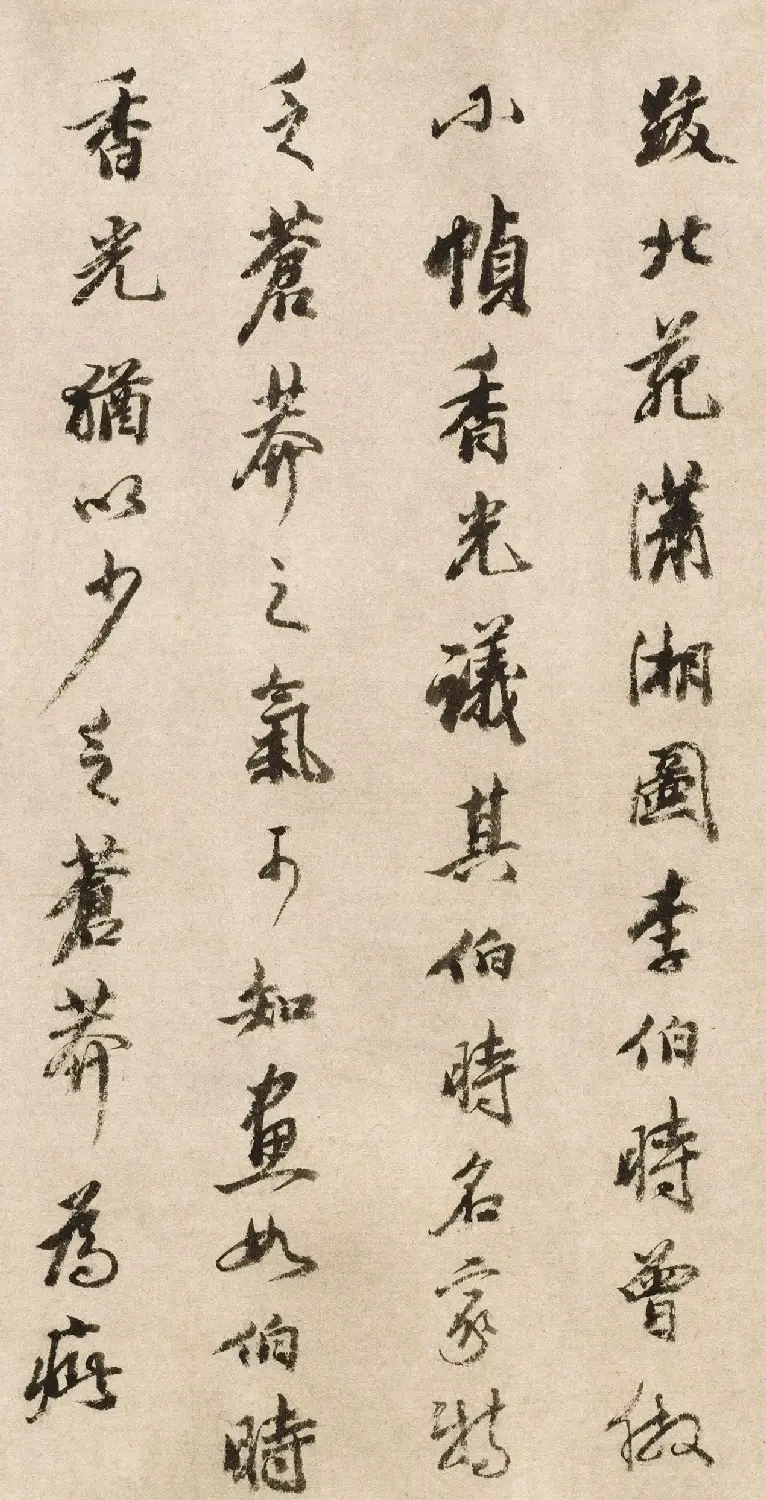 跋北苑瀟湘圖李伯時曾倣
小幀香光議其伯時名家特
乏蒼莽之氣可知畫如伯時
香光猶以少乏蒼莽為疵